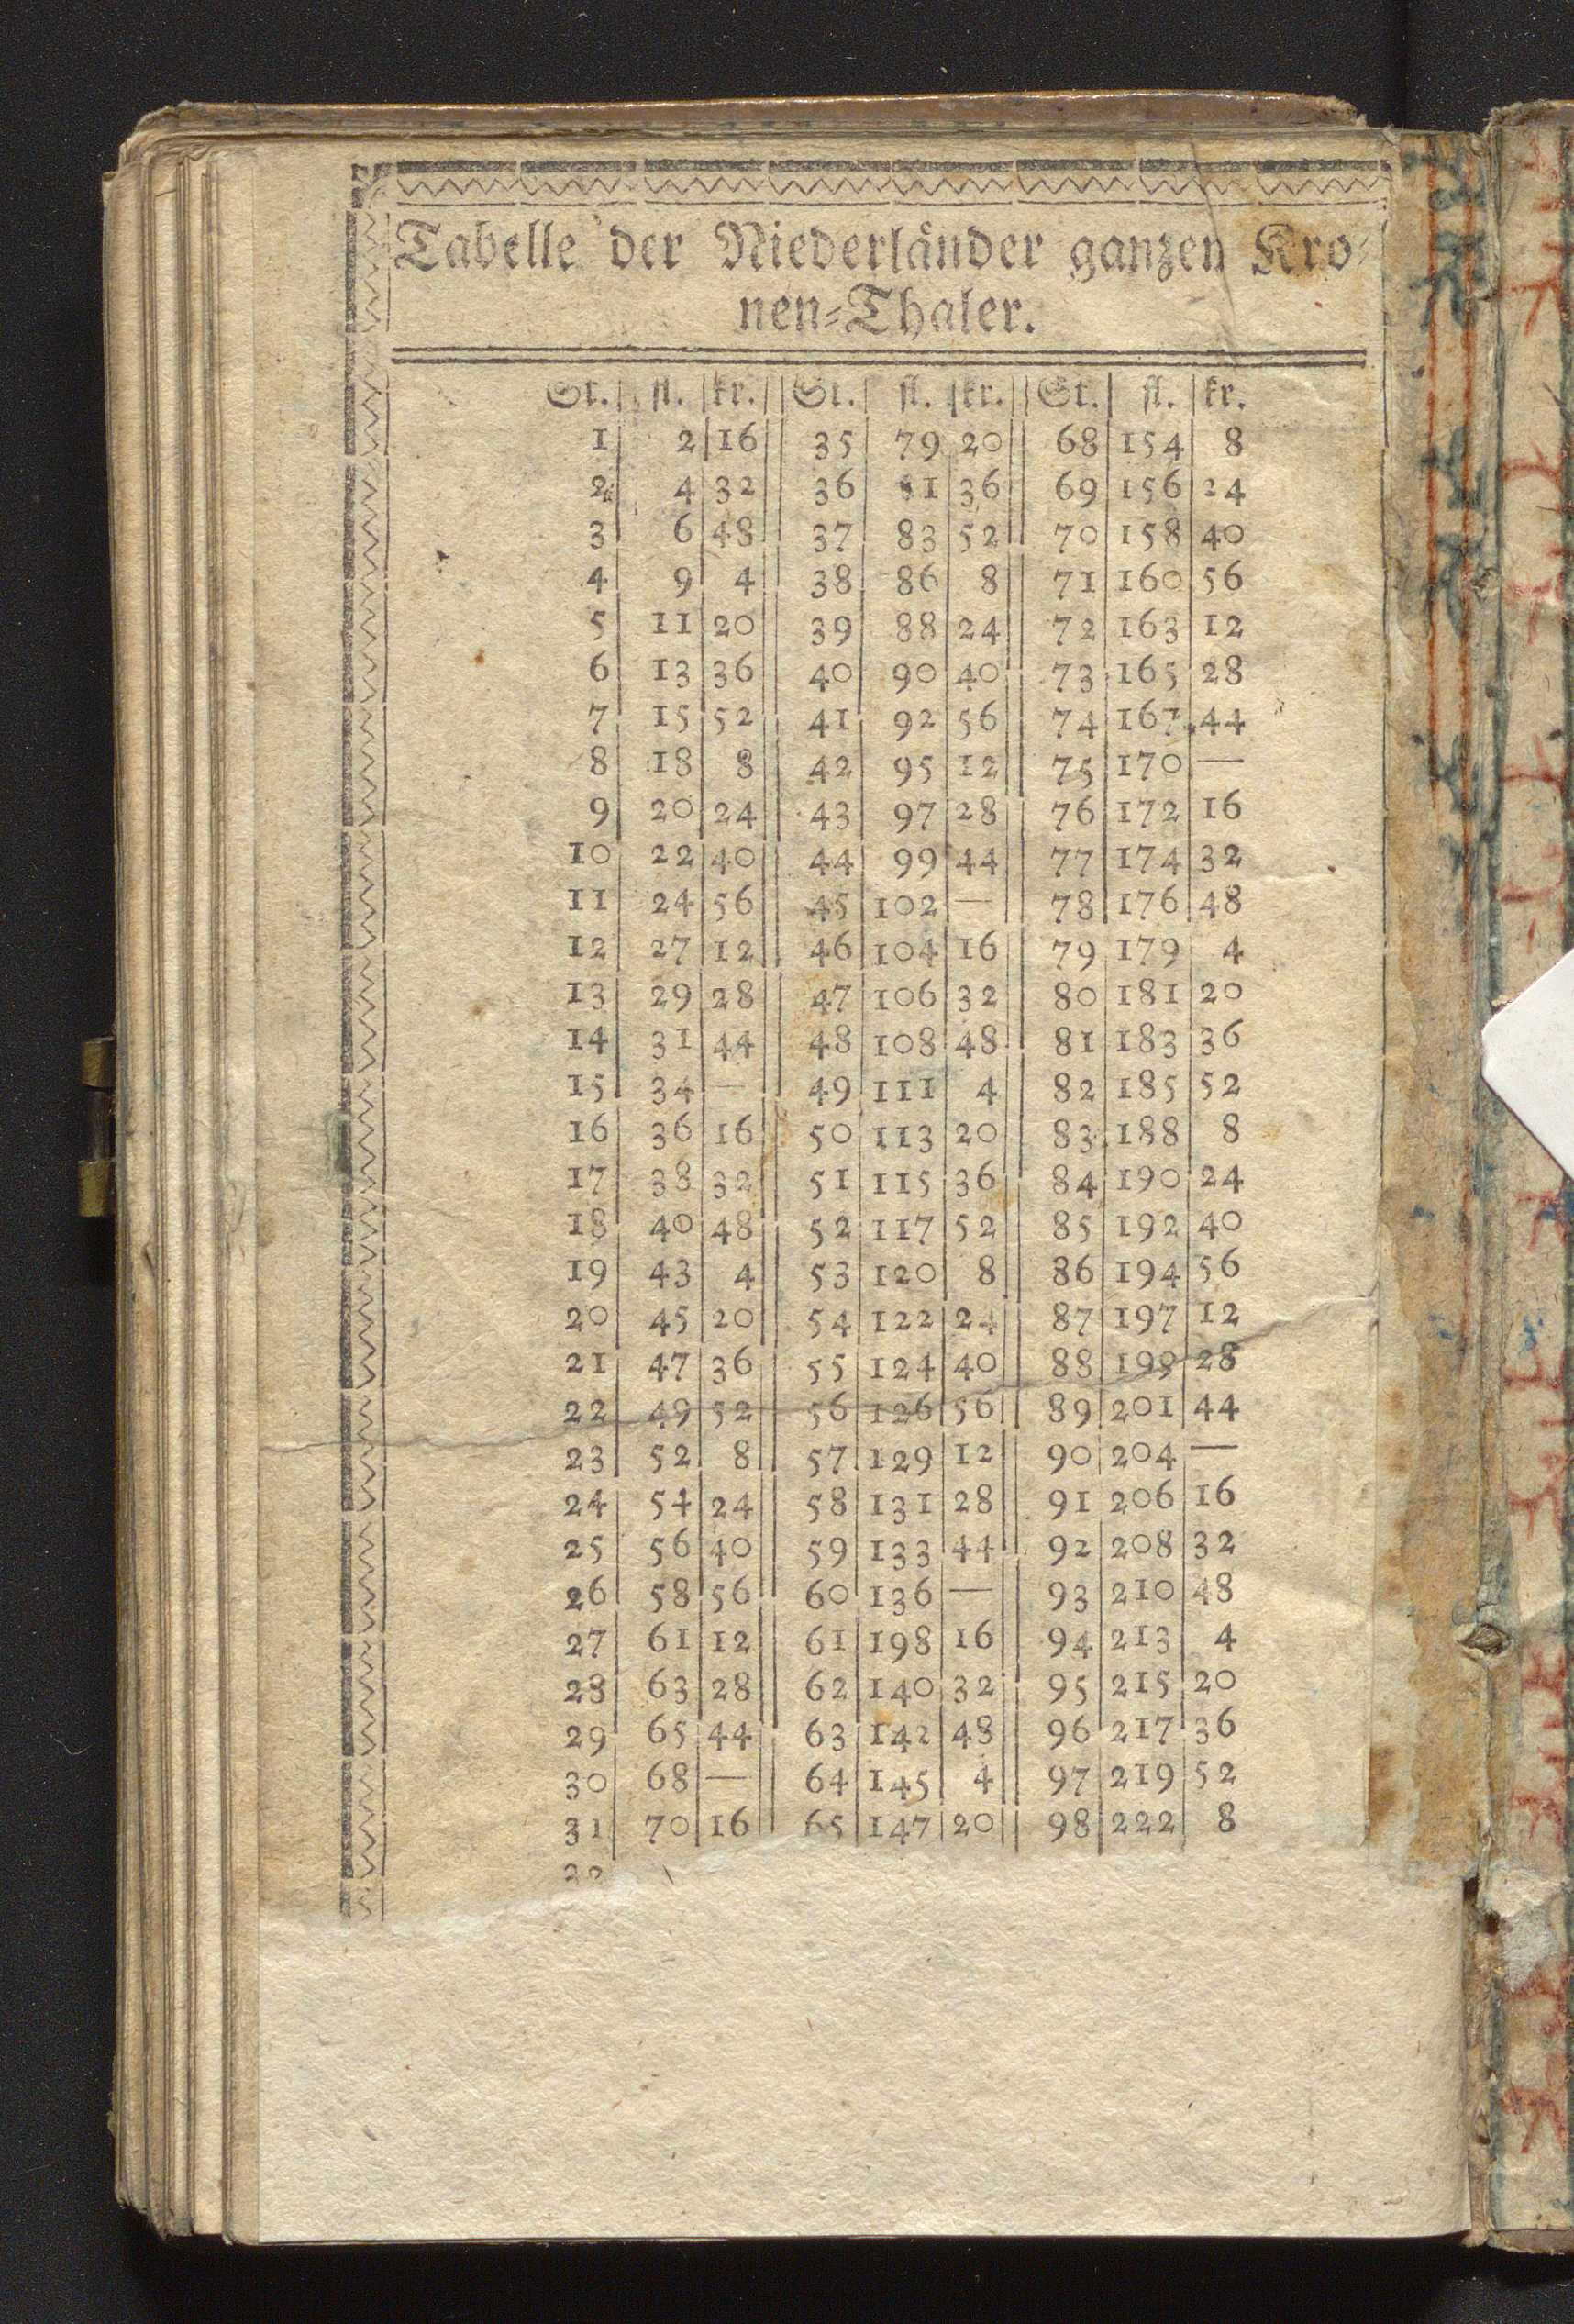 Tabelle der Niederländer ganzen Kro-
nen-Thaler.
St. fl. kr. St. fl. kr. St. fl. kr.
1 2 16 35 79 20 68 154 8
2 4 32 36 81 36 69 156 24
3 6 48 37 83 52 70 158 40
4 9 4 38 86 8 71 160 56
5 11 20 39 88 24 72 163 12
6 13 36 40 90 40 73 165 28
7 15 52 41 92 56 74 167 44
8 18 8 42 95 12 75 170 —
9 20 24 43 97 28 76 172 16
10 22 40 44 99 44 77 174 32
11 24 56 45 102 — 78 176 48
12 27 12 46 104 16 79 179 4
13 29 28 47 106 32 80 181 20
14 31 44 48 108 48 81 183 36
15 34 — 49 111 4 82 185 52
16 36 16 50 113 20 83 188 8
17 38 32 51 115 36 84 190 24
18 40 48 52 117 52 85 192 40
19 43 4 53 120 8 86 194 56
20 45 20 54 122 24 87 197 12
21 47 36 55 124 40 88 199 28
22 49 52 56 126 56 89 201 44
23 52 8 57 129 12 90 204 —
24 54 24 58 131 28 91 206 16
25 56 40 59 133 44 92 208 32
26 58 56 60 136 — 93 210 48
27 61 12 61 198 16 94 213 4
28 63 28 62 140 32 95 215 20
29 65 44 63 142 48 96 217 36
30 68 — 64 145 4 97 219 52
31 70 16 65 147 20 98 222 8